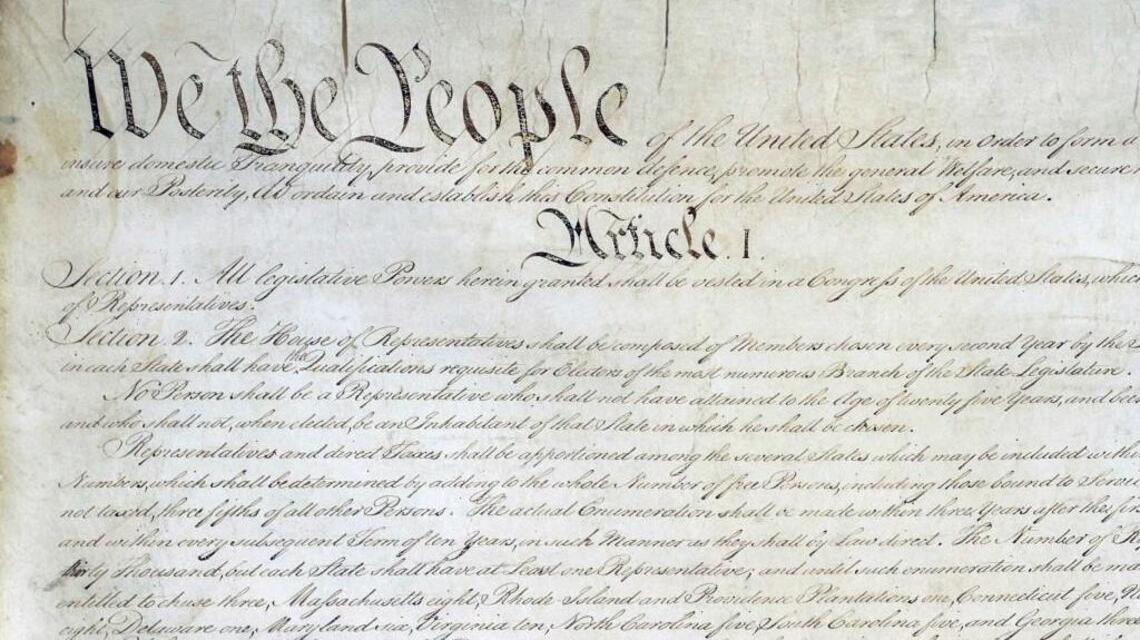 We the People of the United States, in Order to form a
insure domestic Tranquility, provide for the common defence, promote the general Welfare, and secure
and our Posterity, do ordain and establish this Constitution for the United States of America.
Article. I.
Section. 1. All legislative Powers herein granted shall be vested in a Congress of the United States, which
of Representatives.
Section. 2. The House of Representatives shall be composed of Members chosen every second Year by the
in each State shall have the Qualifications requisite for Electors of the most numerous Branch of the State Legislature.
No Person shall be a Representative who shall not have attained to the Age of twenty five Years, and been
and who shall not, when elected, be an Inhabitant of that State in which he shall be chosen.
Representatives and direct Taxes shall be apportioned among the several States which may be included within
Numbers, which shall be determined by adding to the whole Number of free Persons, including those bound to Service
not taxed, three fifths of all other Persons. The actual Enumeration shall be made within three Years after the fir
and within every subsequent Term of ten Years, in such Manner as they shall by Law direct. The Number of R
thirty Thousand, but each State shall have at Least one Representative; and until such enumeration shall be ma
entitled to chuse three, Massachusetts eight, Rhode-Island and Providence Plantations one, Connecticut five, N
eight, Delaware one, Maryland six, Virginia ten, North Carolina five, South Carolina five, and Georgia three